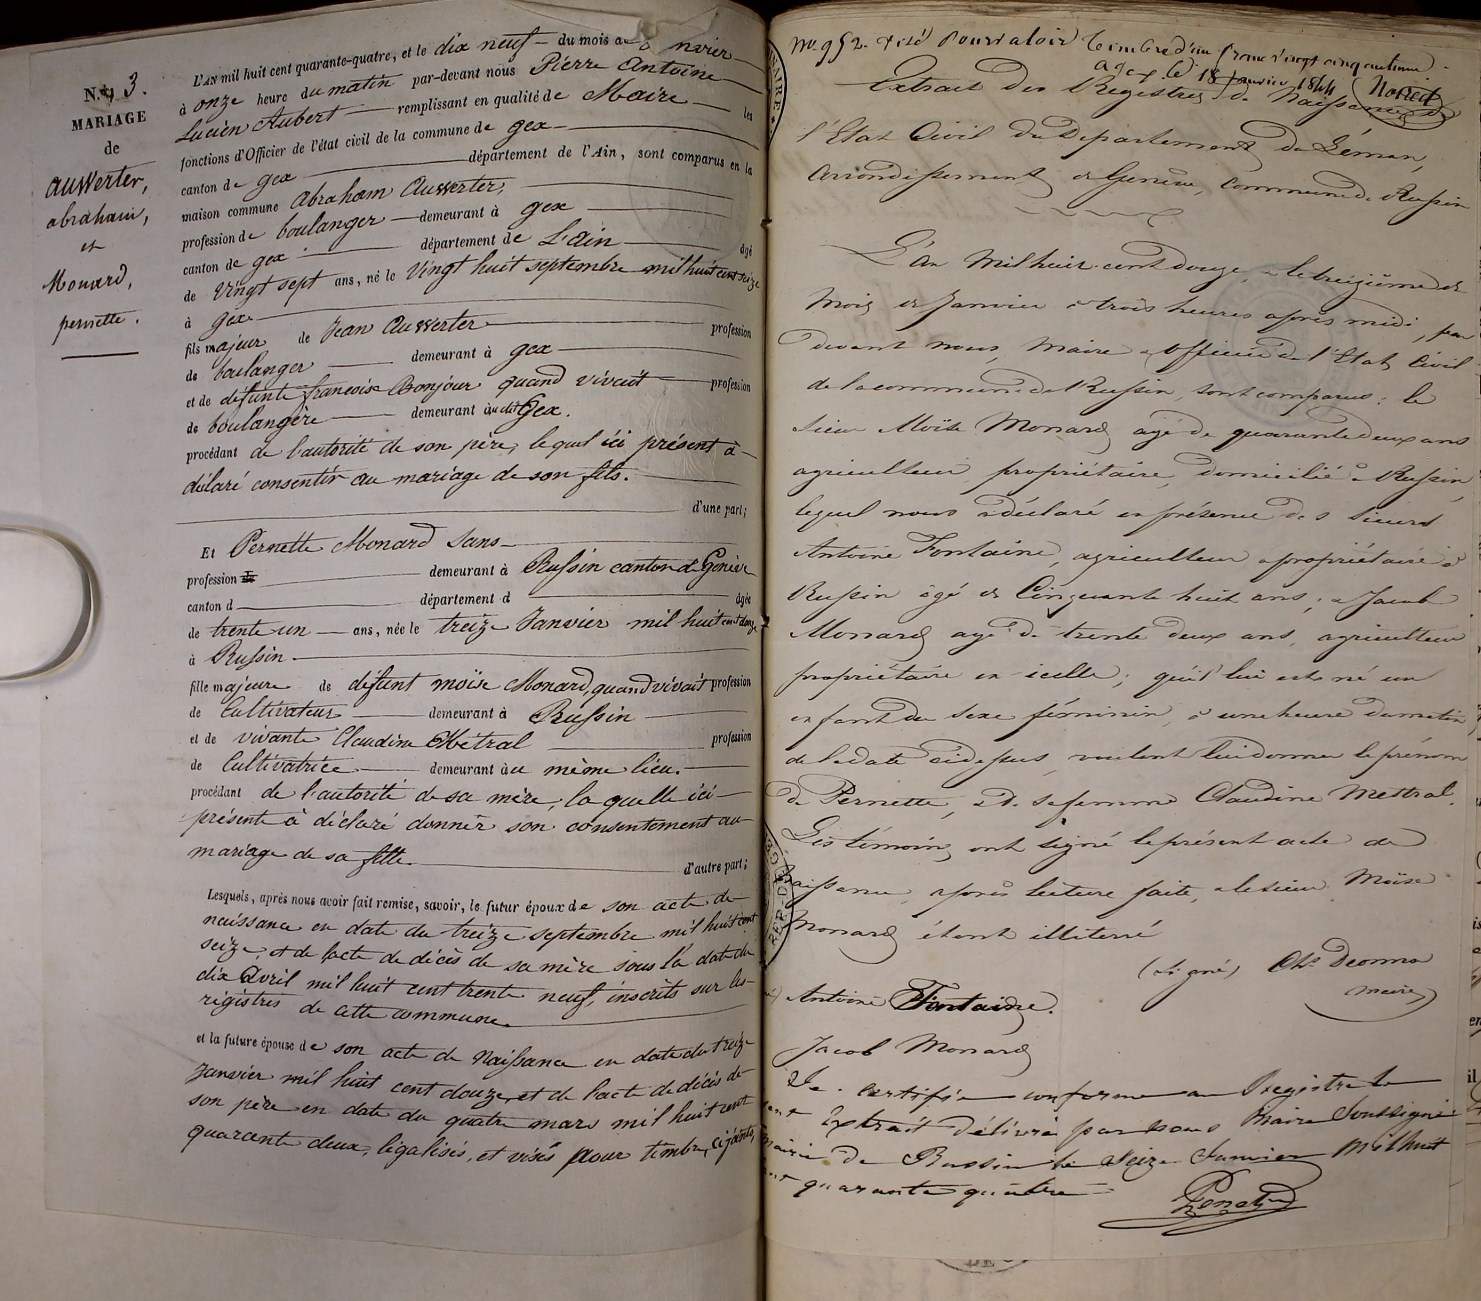 N.° 3.
MARIAGE
de
auswerter,
abraham,
et
Monard,
pernette.
L'AN mil huit cent quarante-quatre, et le dix neuf du mois de Janvier
à onze heure du matin par-devant nous Pierre Antoine
Lucien Aubert remplissant en qualité de Maire les
fonctions d'Officier de l'état civil de la commune de gex
canton de gex département de l'Ain, sont comparus en la
maison commune Abraham Auswerter,
profession de boulanger demeurant à gex
canton de gex département de L'ain âgé
de vingt sept ans, né le vingt huit septembre mil huit cent seize
à gex
fils majeur de Jean Auswerter profession
de boulanger demeurant à gex
et de défunte françoise Bonjour quand vivait profession
de boulangère demeurant au dit Gex.
procédant de l'autorité de son père, lequel ici présent à
déclaré consentir au mariage de son fils.
d'une part;
Et Pernette Monard sans
profession de demeurant à Russin canton de Genève
canton d département d âgée
de trente un ans, née le treize Janvier mil huit cent douze
à Russin
fille majeure de défunt moïse Monard, quand vivait profession
de Cultivateur demeurant à Russin
et de vivante Claudine Métral profession
de Cultivatrice demeurant au même lieu.
procédant de l'autorité de sa mère, la quelle ici
présente à déclaré donner son consentement au
mariage de sa fille. d'autre part;
Lesquels, après nous avoir fait remise, savoir, le futur époux de son acte de
naissance en date du treize septembre mil huit cent
seize, et de l'acte de décès de sa mère sous la date du
dix avril mil huit cent trente neuf, inscrits sur les
régistres de cette commune.
et la future épouse de son acte de Naissance en date du treize
Janvier mil huit cent douze, et de l'acte de décès de
son père en date du quatre mars mil huit cent
quarante deux, légalisés, et visés pour timbre, ci joints,
N° 952. Visé Pour valoir timbre d'un franc vingt cinq centimes.
a gex le 18 Janvier 1844
Extrait des Registres de Naissances de
l'Etat Civil du Département du Léman,
Arrondissement de Genève, Commune de Russin
L'an mil huit cent douze, & le treizième du
mois de Janvier à trois heures après midi, par
devant nous, Maire & officier de l'Etat Civil
de la commune de Russin, sont comparus: le
sieur Moïse Monard agé de quarante deux ans
agriculteur propriétaire, domicilié à Russin,
lequel nous a déclaré en présence des sieurs
Antoine Fontaine, agriculteur & propriétaire à
Russin âgé de Cinquante huit ans, & Jacob
Monard agé de trente deux ans, agriculteur
propriétaire en icelle; qu'il lui est né un
enfant du sexe féminin, à une heure du matin
de la date cidessus, voulant lui donner le prénom
de Pernette, & de sa femme Claudine Mestral.
Les témoins ont signé le présent acte de
naissance, après lecture faite, & le sieur Moïse
Monard étant illiterré
(signé) Chs Deonna
maire
Antoine Fontaine.
Jacob Monard
Je certifie conforme au Registre le
Extrait délivré par nous Maire Soussigné
Mairie de Russin le Seize Janvier Mil huit
cent quarante quatre